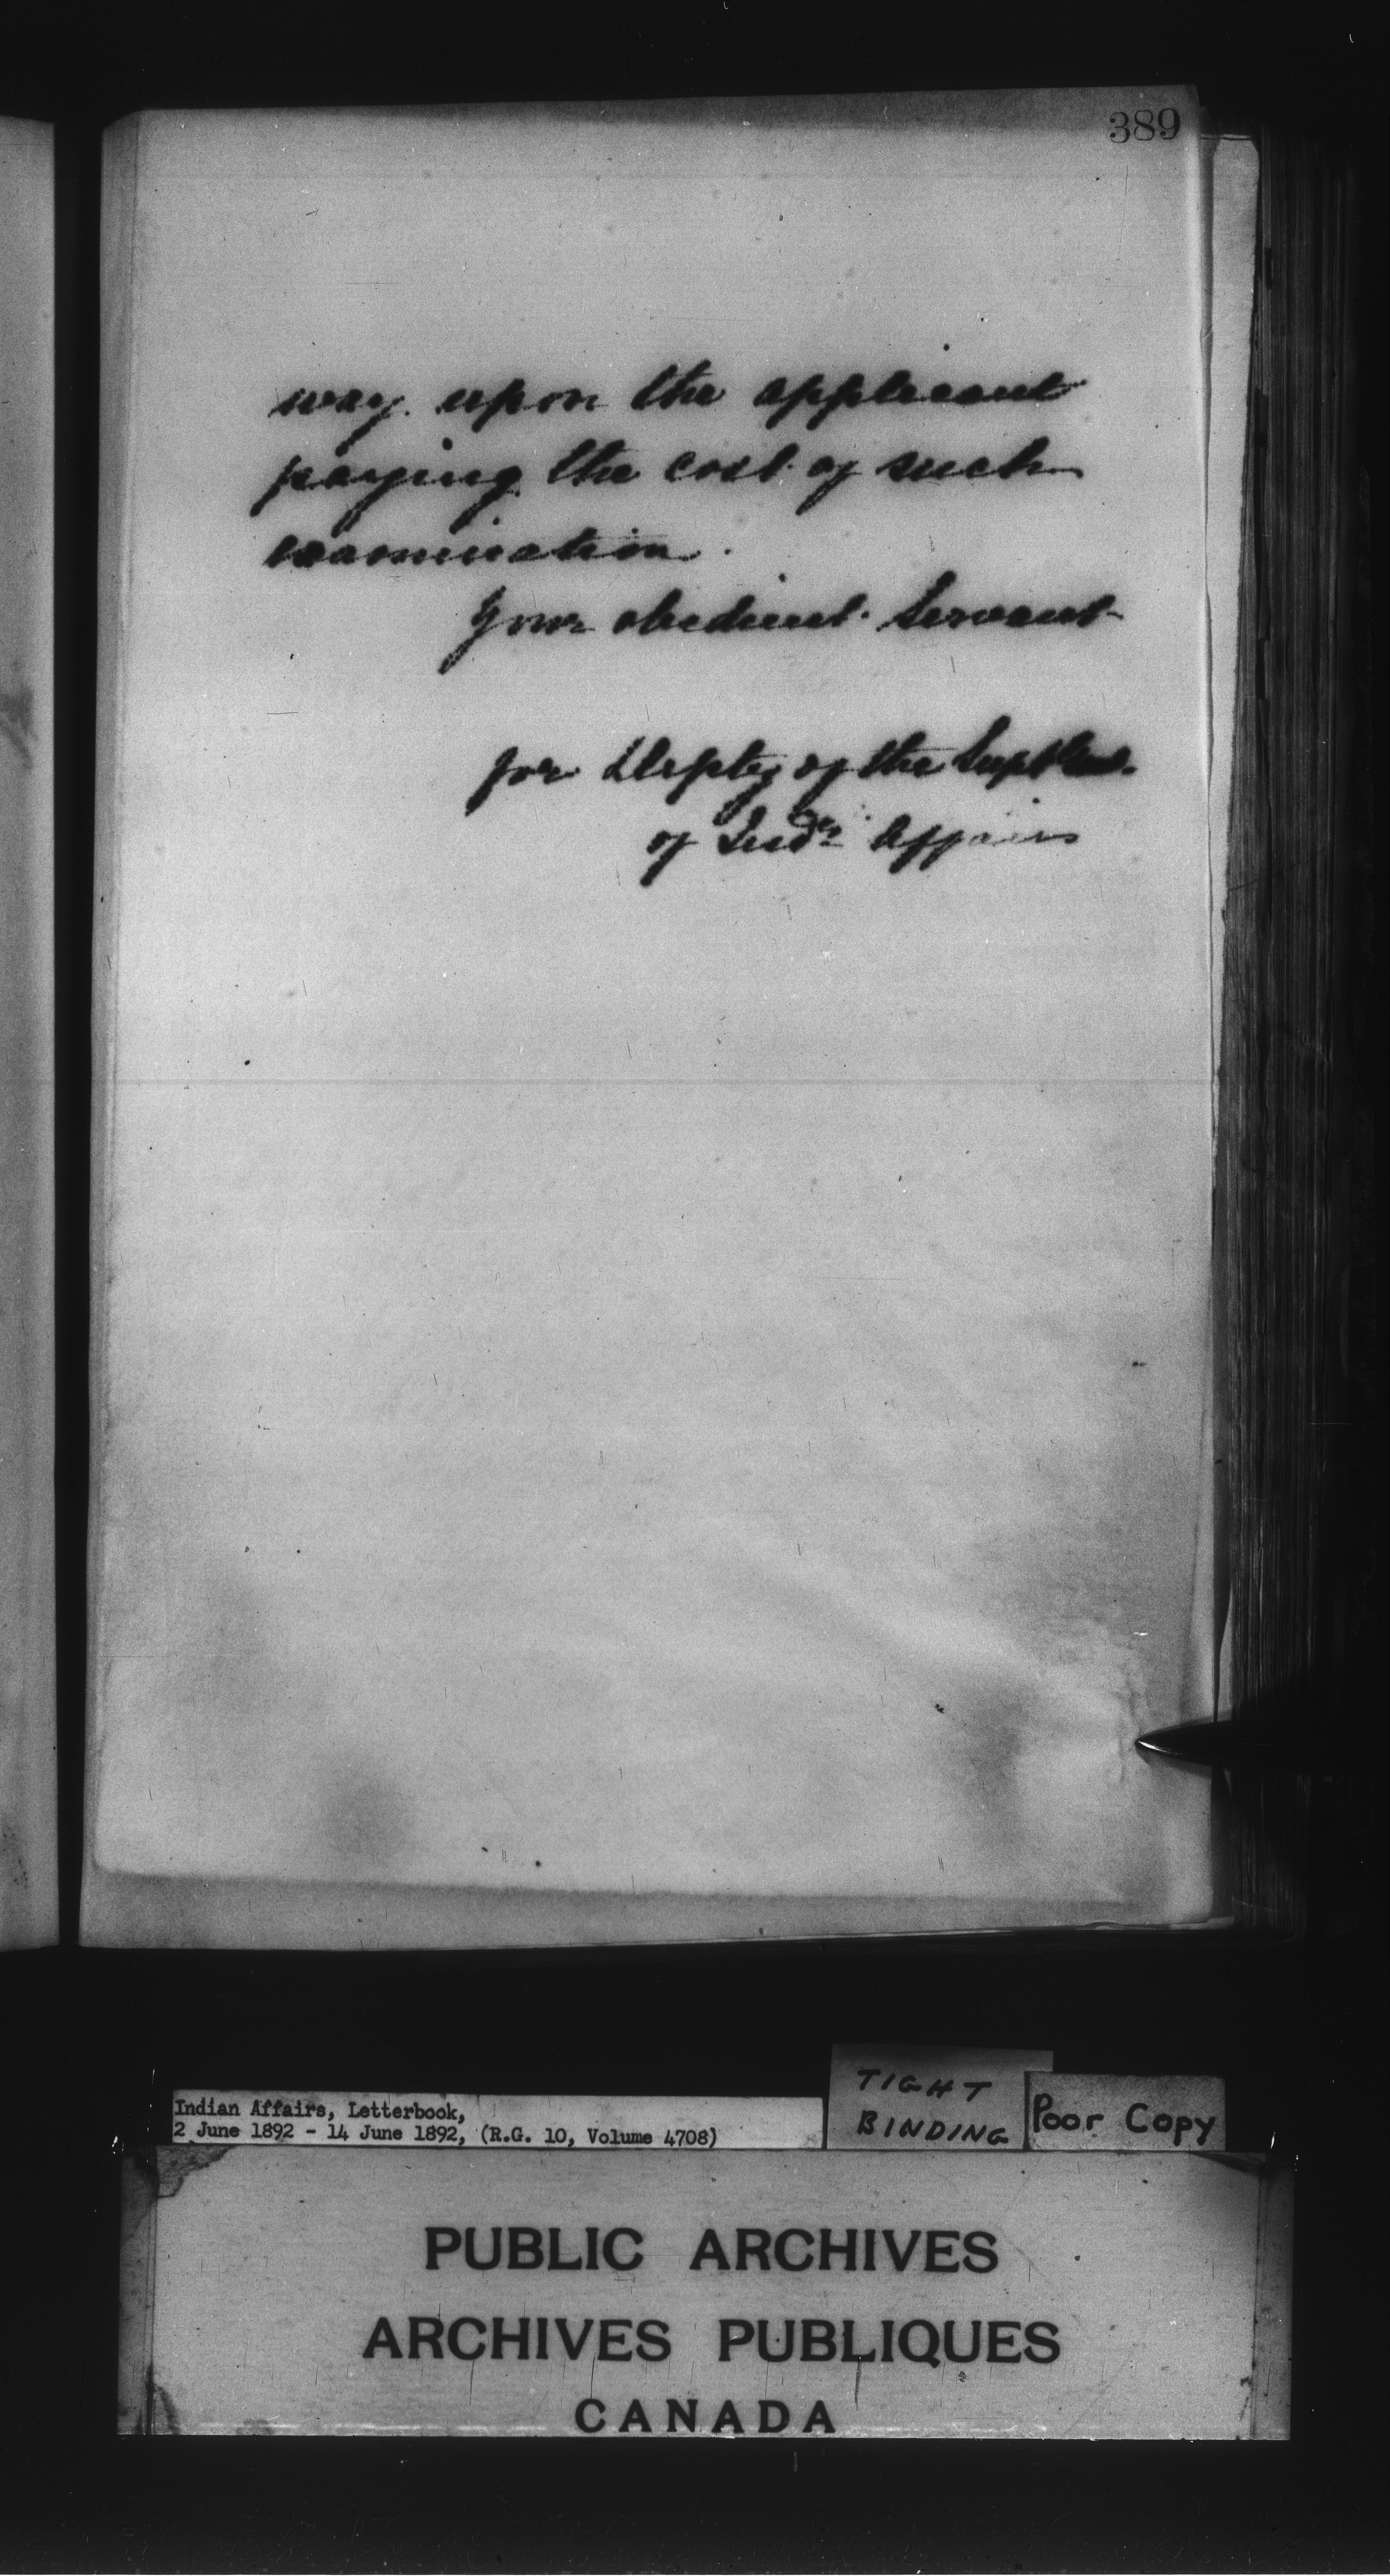 389
way upon the applicant
paying the cost of such
examination.
Your obedient Servant
for Depty of the Supt Gen.
of Indn Affairs
TIGHT
BINDING
Poor Copy
Indian Affairs, Letterbook,
2 June 1892 - 14 June 1892, (R.G. 10, Volume 4708)
PUBLIC ARCHIVES
ARCHIVES PUBLIQUES
CANADA